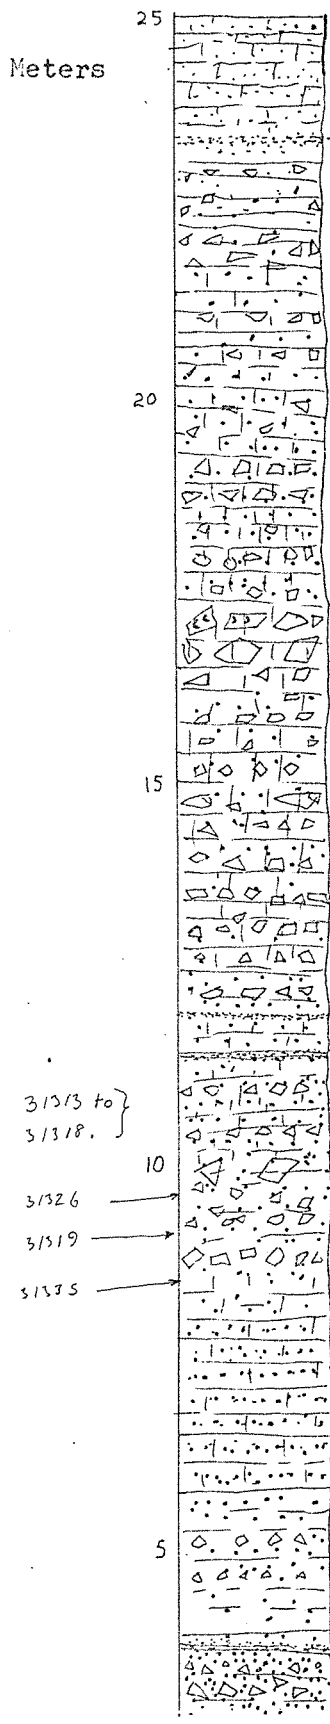 25
Meters
20
15
31313 to }
31318.
10
31326
31319
31335
5